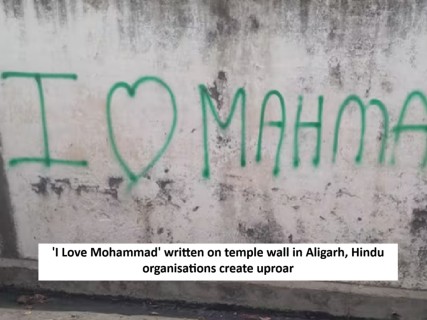 I ♡ MAHMA
'I Love Mohammad' written on temple wall in Aligarh, Hindu
organisations create uproar